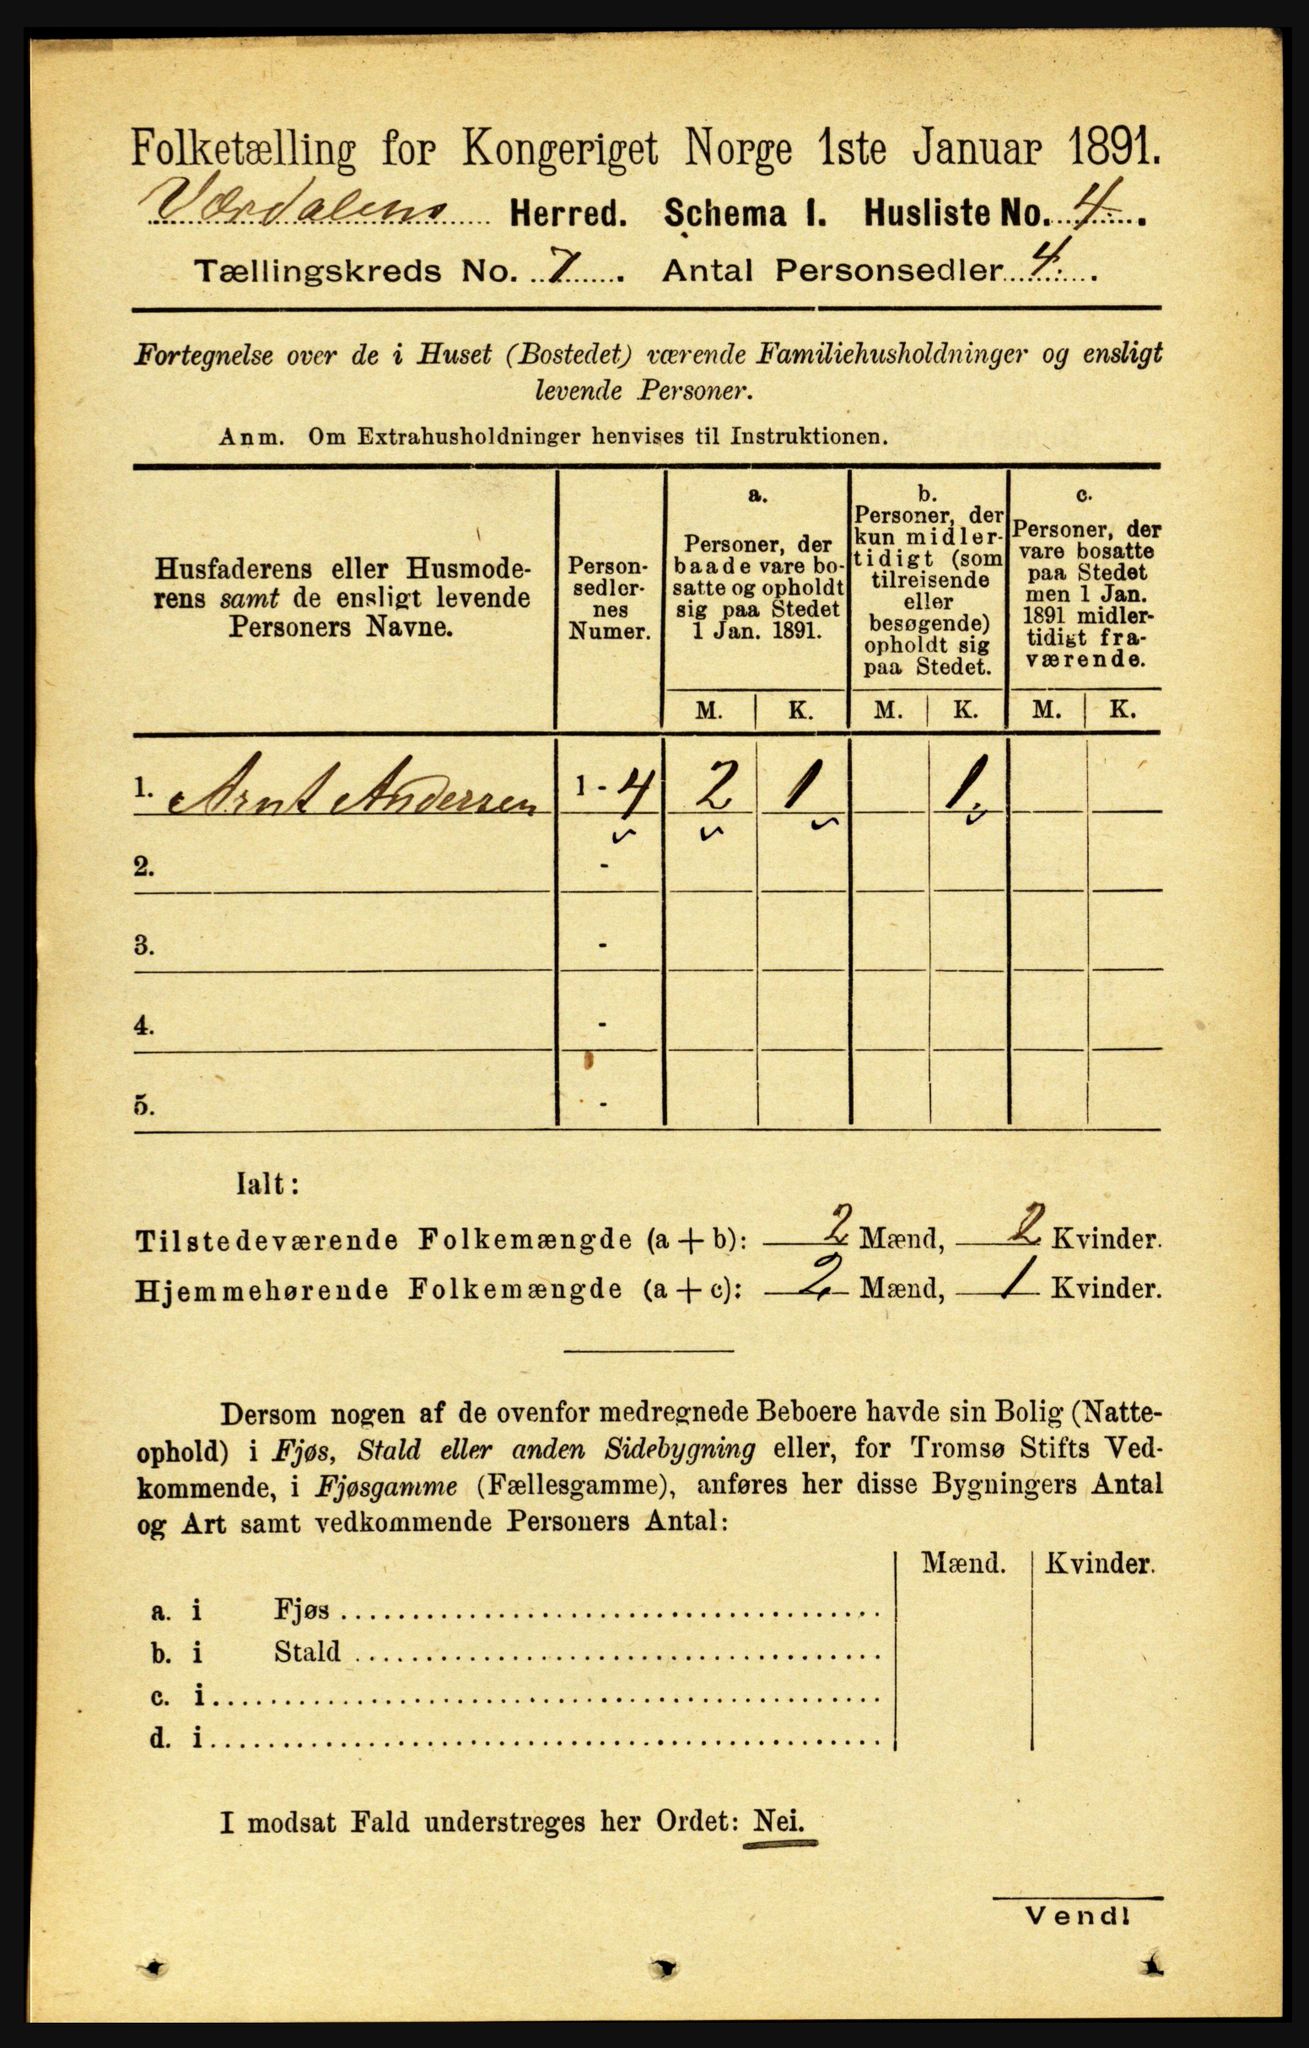 Folketælling for Kongeriget Norge 1ste Januar 1891.
Værdalens Herred. Schema I. Husliste No. 4.
Tællingskreds No. 7. Antal Personsedler 4.
Fortegnelse over de i Huset (Bostedet) værende Familiehusholdninger og ensligt
levende Personer.
Anm. Om Extrahusholdninger henvises til Instruktionen.
Husfaderens eller Husmode-
rens samt de ensligt levende
Personers Navne.
Person-
sedler-
nes
Numer.
a.
Personer, der
baade vare bo-
satte og opholdt
sig paa Stedet
1 Jan. 1891.
b.
Personer, der
kun midler-
tidigt (som
tilreisende
eller
besøgende)
opholdt sig
paa Stedet.
c.
Personer, der
vare bosatte
paa Stedet
men 1 Jan.
1891 midler-
tidigt fra-
værende.
M. K. M. K. M. K.
1. Arnt Andersen 1 - 4 2 1 1.
2. -
3. -
4. -
5. -
Ialt:
Tilstedeværende Folkemængde (a + b): 2 Mænd, 2 Kvinder.
Hjemmehørende Folkemængde (a + c): 2 Mænd, 1 Kvinder.
Dersom nogen af de ovenfor medregnede Beboere havde sin Bolig (Natte-
ophold) i Fjøs, Stald eller anden Sidebygning eller, for Tromsø Stifts Ved-
kommende, i Fjøsgamme (Fællesgamme), anføres her disse Bygningers Antal
og Art samt vedkommende Personers Antal:
Mænd. Kvinder.
a. i Fjøs
b. i Stald
c. i
d. i
I modsat Fald understreges her Ordet: Nei.
Vend!